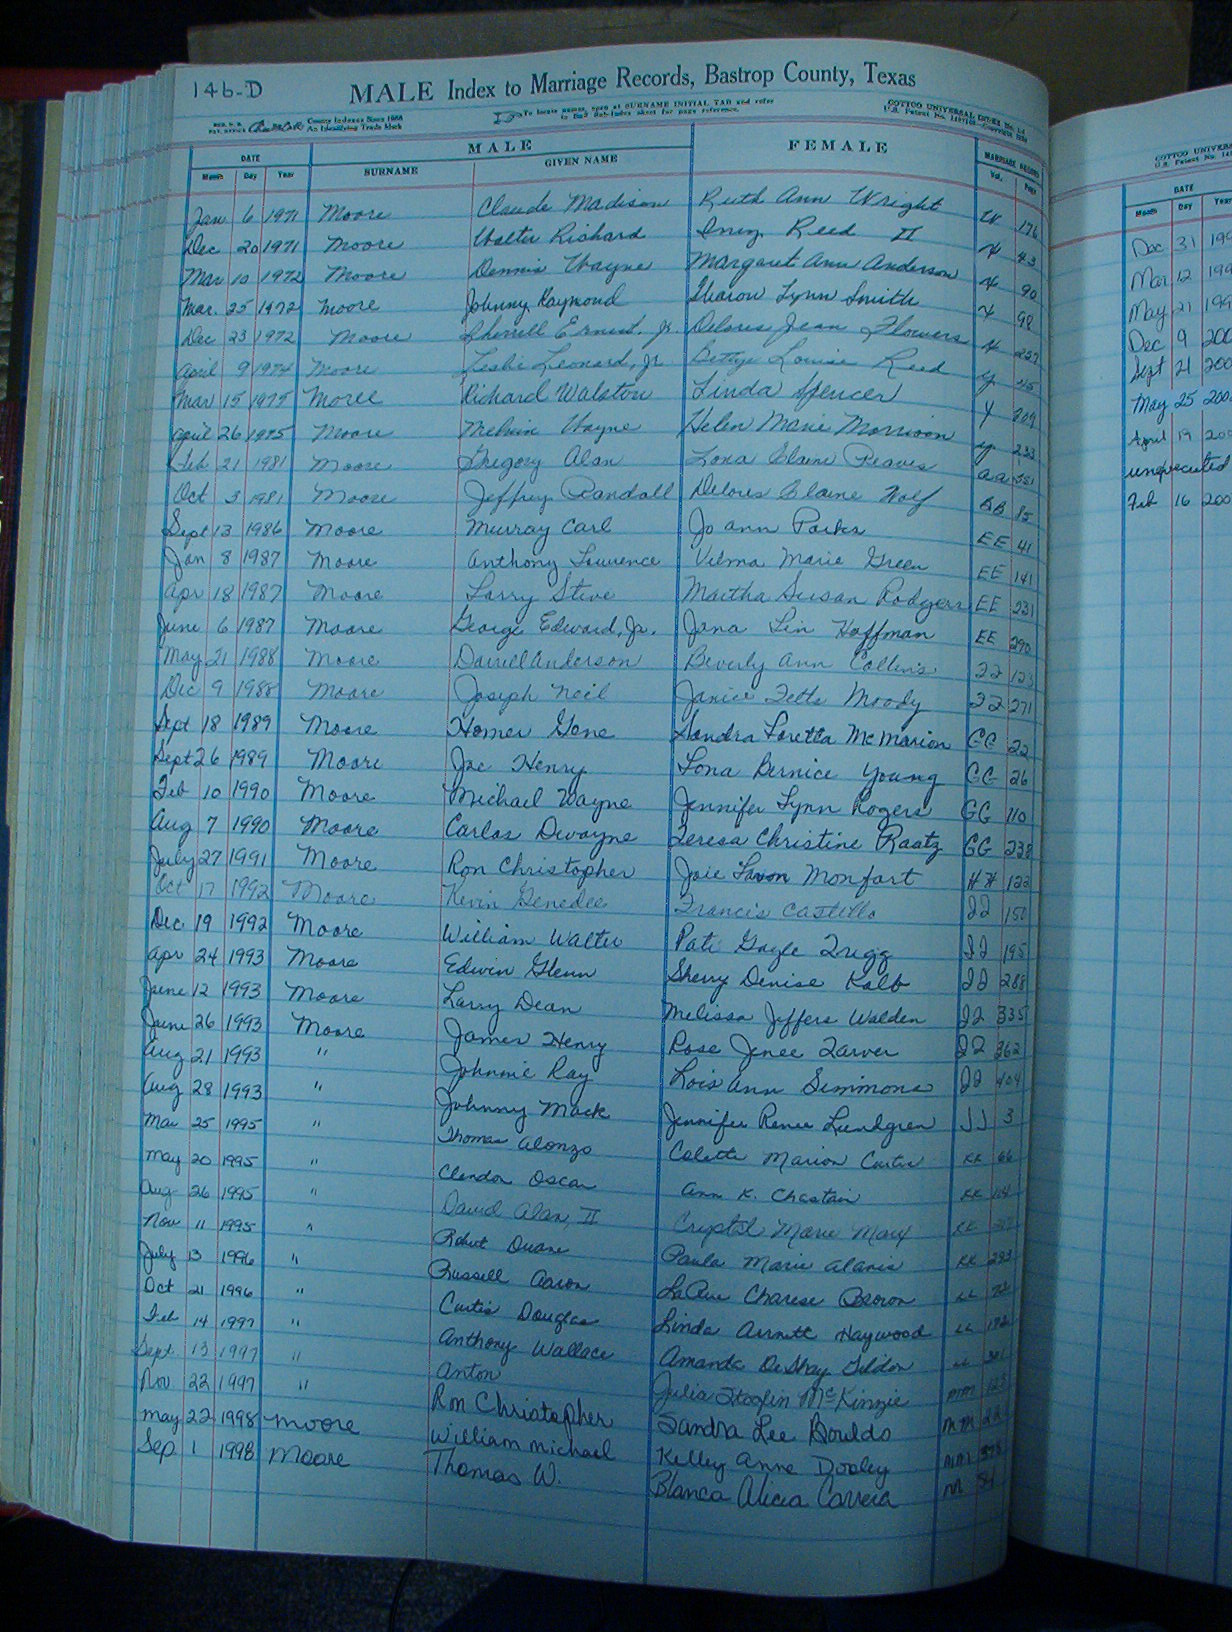 146-D
MALE Index to Marriage Records, Bastrop County, Texas
County Indexes Since 1888 An Identifying Trade Mark
To locate names, open at SURNAME INITIAL TAB and refer to Sub-Index sheet for page reference.
COTTCO UNIVERSAL INDEX
DATE MALE FEMALE MARRIAGE RECORD
Month Day Year SURNAME GIVEN NAME Vol. Page
Jan 6 1971 Moore Claude Madison Ruth Ann Wright W 176
Dec 20 1971 Moore Walter Richard Inez Reed II X 43
Mar 10 1972 Moore Dennis Wayne Margaret Ann Anderson X 90
Mar. 25 1972 Moore Johnny Raymond Sharon Lynn Smith X 98
Dec 23 1972 Moore Sherrell Ernest, Jr. Delores Jean Flowers X 227
April 9 1974 Moore Leslie Leonard, Jr. Bettye Louise Reed Y 45
Mar 15 1975 Moree Richard Walston Linda Spencer Y 209
April 26 1975 Moore Melvin Wayne Helen Marie Morrison Y 233
Feb 21 1981 Moore Gregory Alan Lona Elaine Reaves AA 551
Oct 3 1981 Moore Jeffrey Randall Delores Elaine Wolf BB 85
Sept 13 1986 Moore Murray Carl Jo Ann Parks EE 41
Jan 8 1987 Moore Anthony Lawrence Velma Marie Green EE 141
Apr 18 1987 Moore Larry Steve Martha Susan Rodgers EE 231
June 6 1987 Moore George Edward, Jr. Jana Lin Hoffman EE 290
May 21 1988 Moore Darrell Anderson Beverly Ann Collins FF 123
Dec 9 1988 Moore Joseph Neil Janice Fetts Moody FF 271
Sept 18 1989 Moore Homer Gene Sandra Loretta McMarion GG 22
Sept 26 1989 Moore Joe Henry Lona Bernice Young GG 26
Feb 10 1990 Moore Michael Wayne Jennifer Lynn Rogers GG 110
Aug 7 1990 Moore Carlos Dwayne Teresa Christine Raatz GG 238
July 27 1991 Moore Ron Christopher Joie Lavon Monfort HH 122
Oct 17 1992 Moore Kevin Genedee Francis Castello II 150
Dec 19 1992 Moore William Walter Pati Gayle Trigg II 195
Apr 24 1993 Moore Edwin Glenn Sherry Denise Kalb II 288
June 12 1993 Moore Larry Dean Melissa Jeffers Walden II 335
June 26 1993 Moore James Henry Rose Jenee Tarver II 362
Aug 21 1993 " Johnnie Ray Lois Ann Simmons II 404
Aug 28 1993 " Johnny Mack Jennifer Renee Lundgren JJ 3
Mar 25 1995 " Thomas Alonzo Colette Marion Curtis KK 66
May 20 1995 " Clendon Oscar Ann K. Chastain KK
Aug 26 1995 " David Alan, II Crystal Marie Marx KK
Nov 11 1995 " Robert Duane Paula Marie Alanis KK 293
July 13 1996 " Russell Aaron LaRue Charese Brown LL
Oct 21 1996 " Curtis Douglas Linda Annett Haywood LL
Feb 14 1997 " Anthony Wallace Amanda DeShay Tilldon LL
Sept 13 1997 " Anton Julia McKinzie MM
Nov 22 1997 " Ron Christopher Sandra Lee Boulds MM
May 22 1998 Moore William Michael Kelley Anne Dooley MM
Sep 1 1998 Moore Thomas W. Blanca Alicia Correia
COTTCO UNIVERS
DATE
Month Day Year
Dec 31 199
Mar 12 199
May 21 199
Dec 9 200
Sept 21 200
May 25 200
April 19 200
unexecuted
Feb 16 200